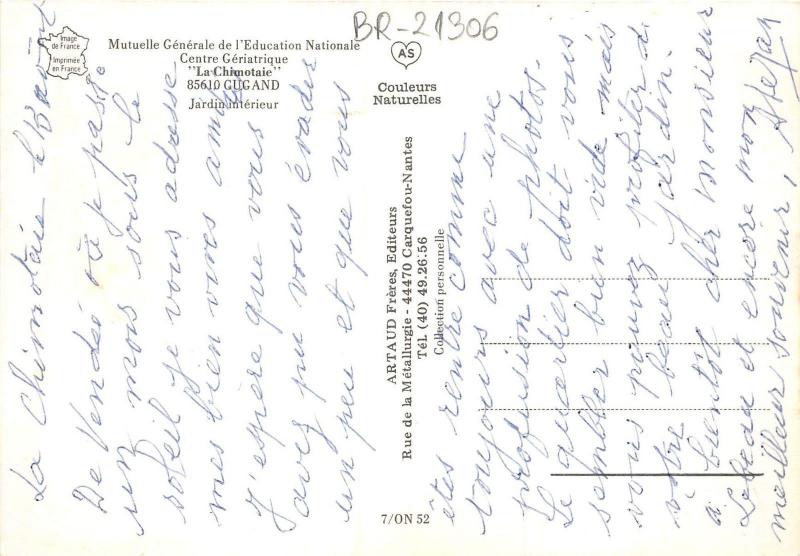 BR-21306
Image
de France
Imprimée
en France
Mutuelle Générale de l'Education Nationale
Centre Gériatrique
"La Chimotaie"
85610 CUGAND
Jardin intérieur
AS
Couleurs
Naturelles
ARTAUD Frères, Editeurs
Rue de la Métallurgie - 44470 Carquefou-Nantes
Tél. (40) 49.26.56
Collection personnelle
7/ON 52
La Chimotaie le
De Vendée où je passe
un mois sous le
soleil je vous adresse
mes bien vives amitiés
J'espère que vous
avez pu vous évader
un peu et que vous
êtes rentré comme
toujours avec une
profusion de photos.
Le quartier doit vous
sembler bien vide mais
vous pouvez profiter de
votre beau jardin.
à bientôt cher monsieur
Lebeau et encore mon
meilleur souvenir,